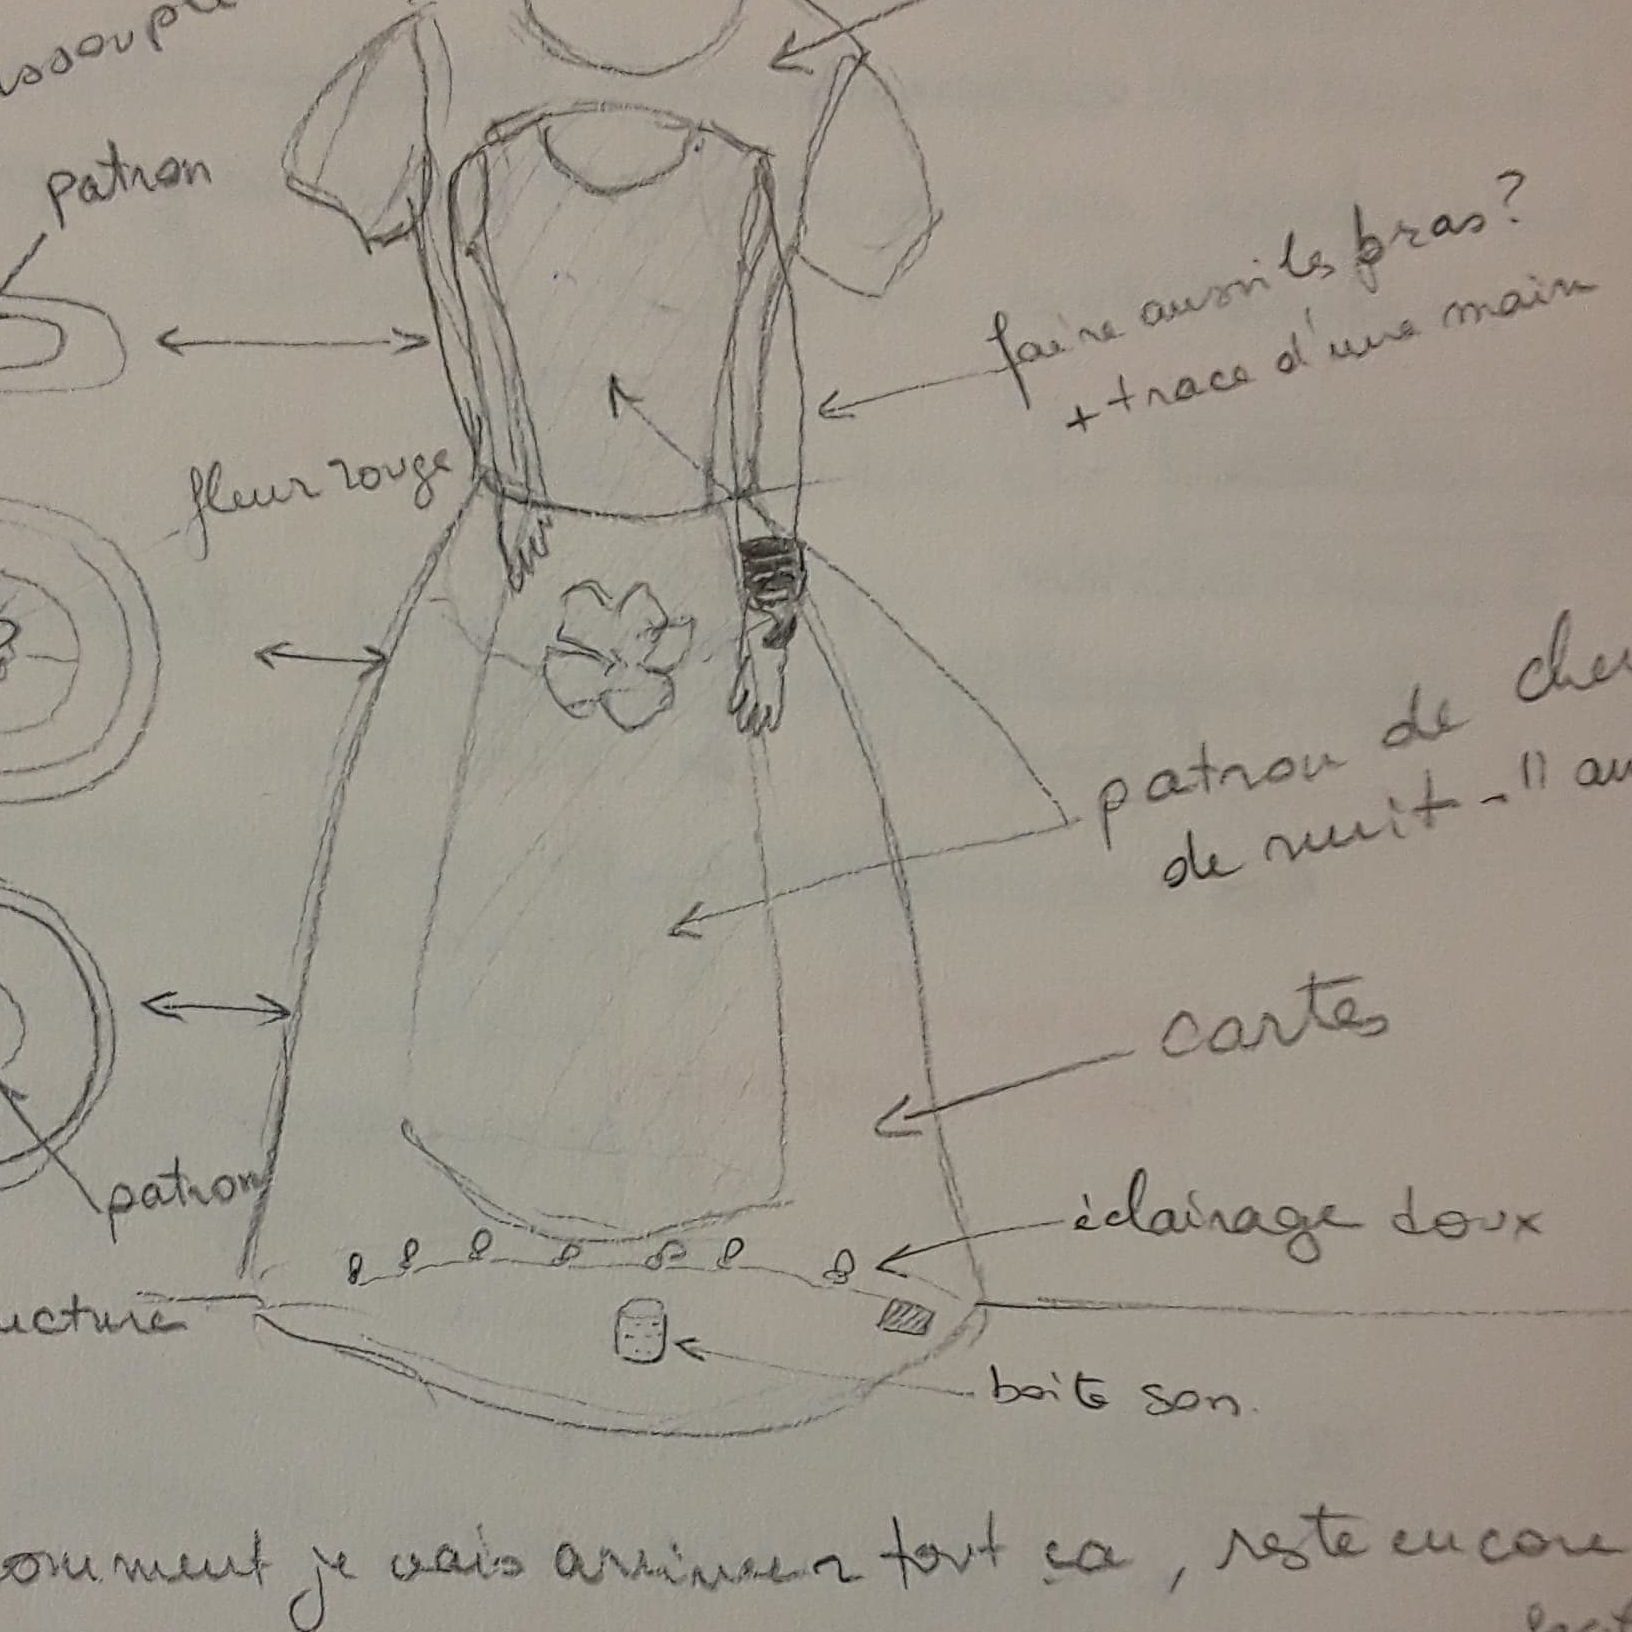 patron
faire aussi les bras?
+ trace d'une main
fleur rouge
patron de
de nuit -
cartes
patron
éclairage doux
boite son.
je vais arriver tout ça, reste encore